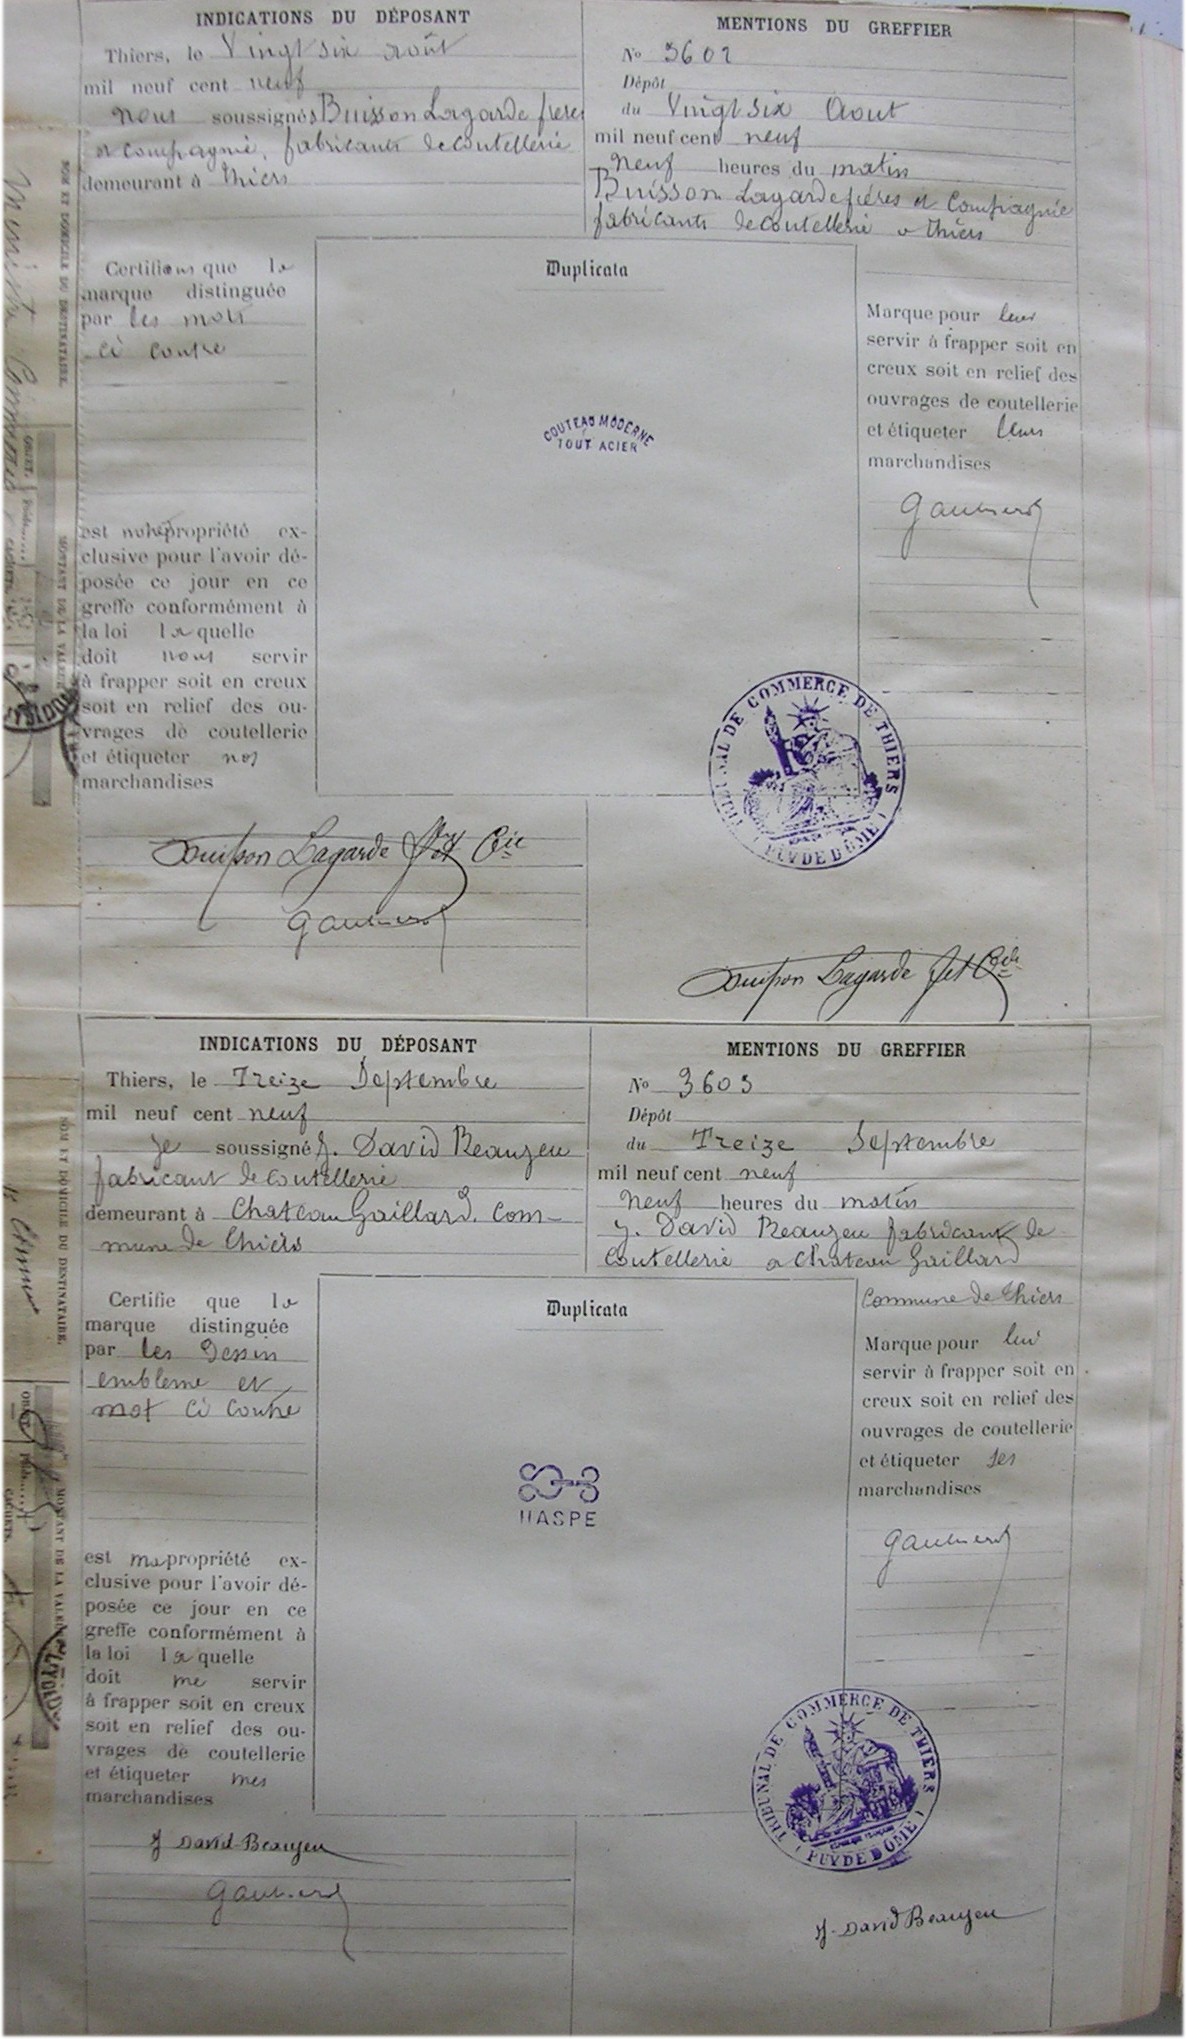 INDICATIONS DU DÉPOSANT
Thiers, le Vingt six août
mil neuf cent neuf
nous soussignés Buisson Lagarde freres
et compagnie, fabricants de coutellerie
demeurant à Thiers
MENTIONS DU GREFFIER
No 3602
Dépôt
du Vingt six Aout
mil neuf cent neuf
neuf heures du matin
Buisson Lagarde fréres et Compagnie
fabricants de coutellerie a Thiers
Certifions que la
marque distinguée
par les mots
ci contre
est notre propriété ex-
clusive pour l'avoir dé-
posée ce jour en ce
greffe conformément à
la loi laquelle
doit nous servir
à frapper soit en creux
soit en relief des ou-
vrages de coutellerie
et étiqueter nos
marchandises
Duplicata
COUTEAU MODERNE
TOUT ACIER
Marque pour leur
servir à frapper soit en
creux soit en relief des
ouvrages de coutellerie
et étiqueter leurs
marchandises
TRIBUNAL DE COMMERCE DE THIERS
( PUY DE DOME )
Buisson Lagarde fs et Cie
Buisson Lagarde f et Cie
INDICATIONS DU DÉPOSANT
Thiers, le Treize Septembre
mil neuf cent neuf
je soussigné J. David Beaujeu
fabricant de coutellerie
demeurant à Chateau Gaillard. Com-
mune de Thiers
MENTIONS DU GREFFIER
No 3603
Dépôt
du Treize Septembre
mil neuf cent neuf
neuf heures du matin
J. David Beaujeu fabricant de
coutellerie a Chateau Gaillard
Commune de Thiers
Certifie que la
marque distinguée
par les dessin
embleme et
mot ci contre
est ma propriété ex-
clusive pour l'avoir dé-
posée ce jour en ce
greffe conformément à
la loi laquelle
doit me servir
à frapper soit en creux
soit en relief des ou-
vrages de coutellerie
et étiqueter mes
marchandises
Duplicata
HASPE
Marque pour lui
servir à frapper soit en
creux soit en relief des
ouvrages de coutellerie
et étiqueter ses
marchandises
TRIBUNAL DE COMMERCE DE THIERS
( PUY DE DOME )
J David-Beaujeu
J. David Beaujeu
NOM ET DOMICILE DU DESTINATAIRE.
MONTANT DE LA VALEUR
NOM ET DOMICILE DU DESTINATAIRE.
MONTANT DE LA VALEUR